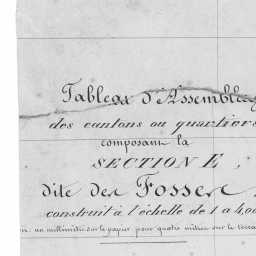 Tableau d'Assemblag
des cantons ou quartiers
composant la
SECTION E,
dite des Fosses
construit à l'échelle de 1 a 4,00
un millimètre sur le papier pour quatre mètres sur le terrai